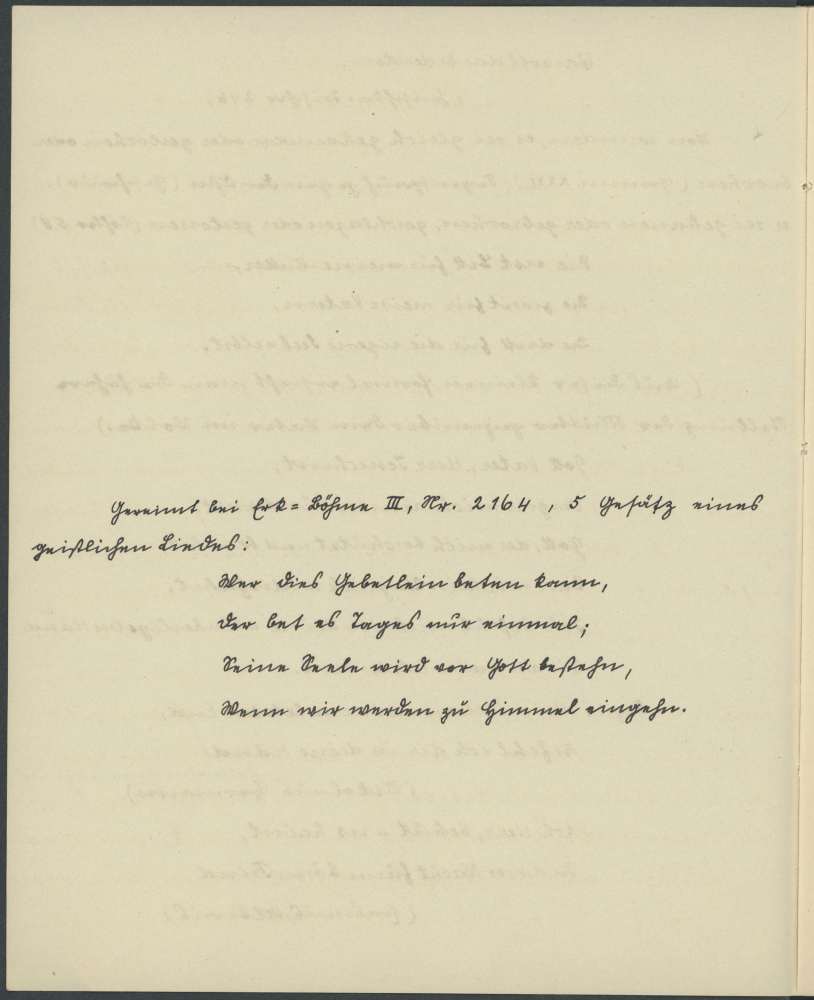 Gereimt bei Erk=Böhme III, Nr. 2164, 5 Gesätz eines
geistlichen Liedes:
Wer dies Gebetlein beten kann,
Der bet es Tages nur einmal;
Seine Seele wird vor Gott bestehn,
Wenn wir werden zu Himmel eingehn.